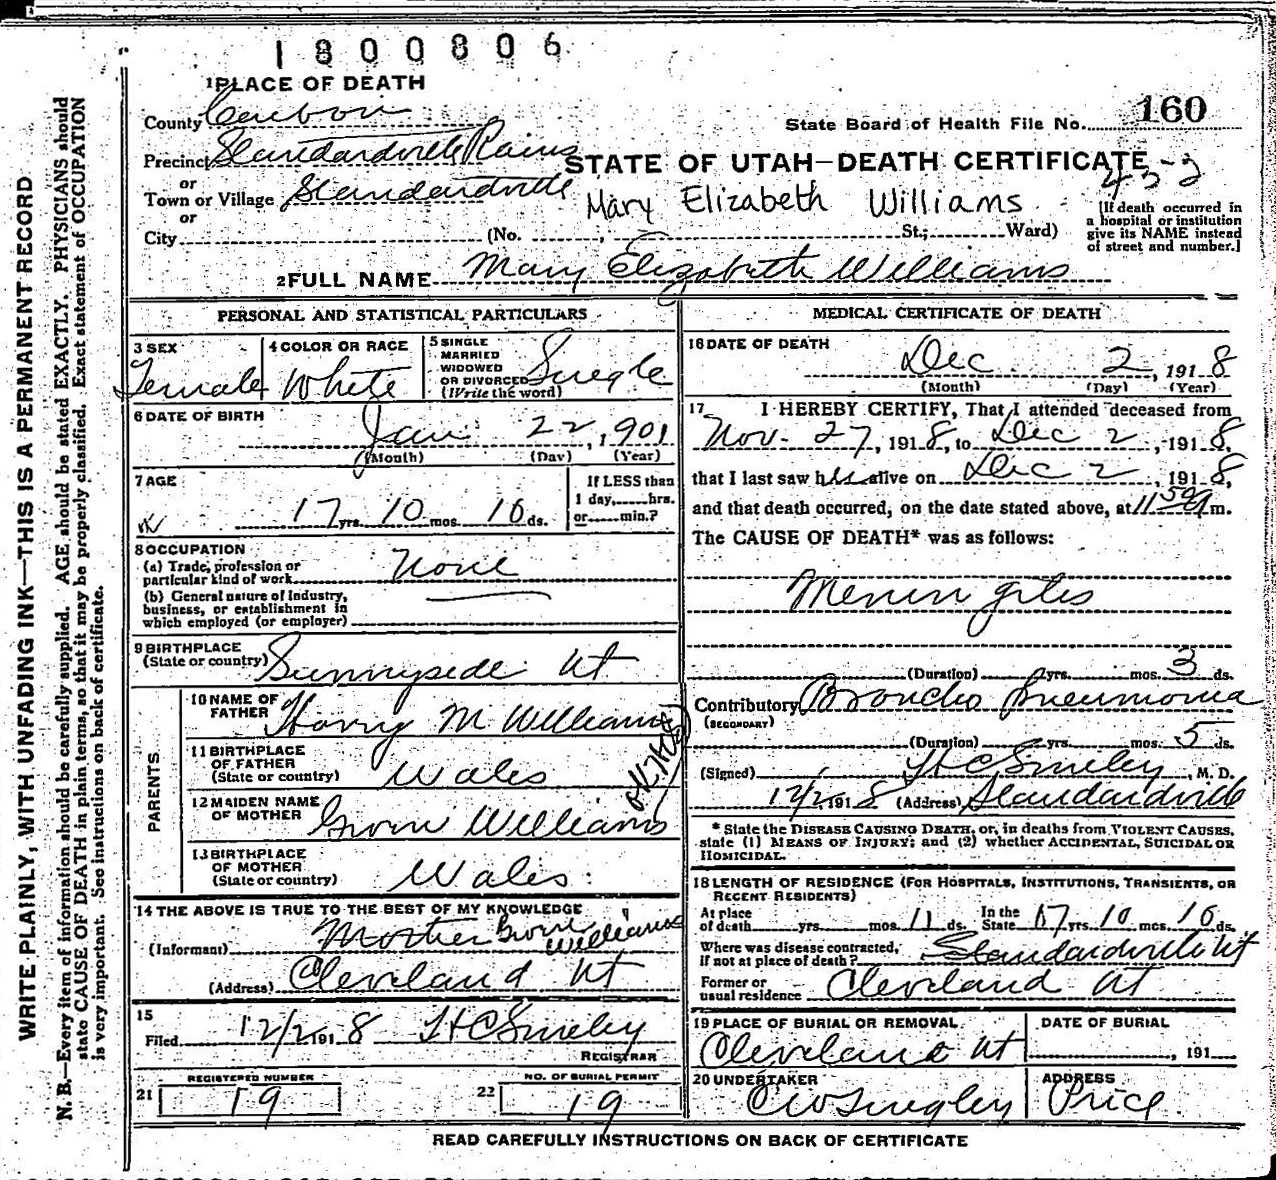 1800806
1 PLACE OF DEATH
County Carbon
State Board of Health File No. 160
Precinct Standardville Rains
STATE OF UTAH—DEATH CERTIFICATE
or
Town or Village Standardville
Mary Elizabeth Williams
or
City (No. , St.; Ward)
[If death occurred in
a hospital or institution
give its NAME instead
of street and number.]
2 FULL NAME Mary Elizabeth Williams
PERSONAL AND STATISTICAL PARTICULARS
3 SEX Female
4 COLOR OR RACE White
5 SINGLE
MARRIED
WIDOWED
OR DIVORCED
(Write the word) Single
6 DATE OF BIRTH
Jan 22, 1901
(Month) (Day) (Year)
7 AGE
17 yrs. 10 mos. 10 ds.
If LESS than
1 day, hrs.
or min.?
8 OCCUPATION
(a) Trade, profession or
particular kind of work None
(b) General nature of Industry,
business, or establishment in
which employed (or employer)
9 BIRTHPLACE
(State or country) Sunnyside Ut
PARENTS
10 NAME OF
FATHER Harry M Williams
11 BIRTHPLACE
OF FATHER
(State or country) Wales
12 MAIDEN NAME
OF MOTHER Gwen Williams
13 BIRTHPLACE
OF MOTHER
(State or country) Wales
14 THE ABOVE IS TRUE TO THE BEST OF MY KNOWLEDGE
(Informant) Mother Gwen Williams
(Address) Cleveland Ut
15
Filed 12/2 1918 H C Smeley
REGISTRAR
21 REGISTERED NUMBER
19
22 NO. OF BURIAL PERMIT
19
MEDICAL CERTIFICATE OF DEATH
16 DATE OF DEATH
Dec 2, 1918
(Month) (Day) (Year)
17 I HEREBY CERTIFY, That I attended deceased from
Nov. 27, 1918, to Dec 2, 1918,
that I last saw her alive on Dec 2, 1918,
and that death occurred, on the date stated above, at 11 50a m.
The CAUSE OF DEATH* was as follows:
Meningites
(Duration) yrs. mos. 3 ds.
Contributory Broncho Pneumonia
(SECONDARY)
(Duration) yrs. mos. 5 ds.
(Signed) H C Smeley, M. D.
12/2 1918 (Address) Standardville
* State the DISEASE CAUSING DEATH, or, in deaths from VIOLENT CAUSES,
state (1) MEANS OF INJURY; and (2) whether ACCIDENTAL, SUICIDAL OR
HOMICIDAL.
18 LENGTH OF RESIDENCE (FOR HOSPITALS, INSTITUTIONS, TRANSIENTS, OR
RECENT RESIDENTS)
At place
of death yrs. mos. 11 ds. In the
State 17 yrs. 10 mos. 10 ds.
Where was disease contracted,
If not at place of death? Standardville Ut
Former or
usual residence Cleveland Ut
19 PLACE OF BURIAL OR REMOVAL
Cleveland Ut
DATE OF BURIAL
, 191
20 UNDERTAKER
C W Singley
ADDRESS
Price
READ CAREFULLY INSTRUCTIONS ON BACK OF CERTIFICATE
WRITE PLAINLY, WITH UNFADING INK—THIS IS A PERMANENT RECORD
N. B.—Every item of information should be carefully supplied. AGE should be stated EXACTLY. PHYSICIANS should
state CAUSE OF DEATH in plain terms, so that it may be properly classified. Exact statement of OCCUPATION
is very important. See instructions on back of certificate.